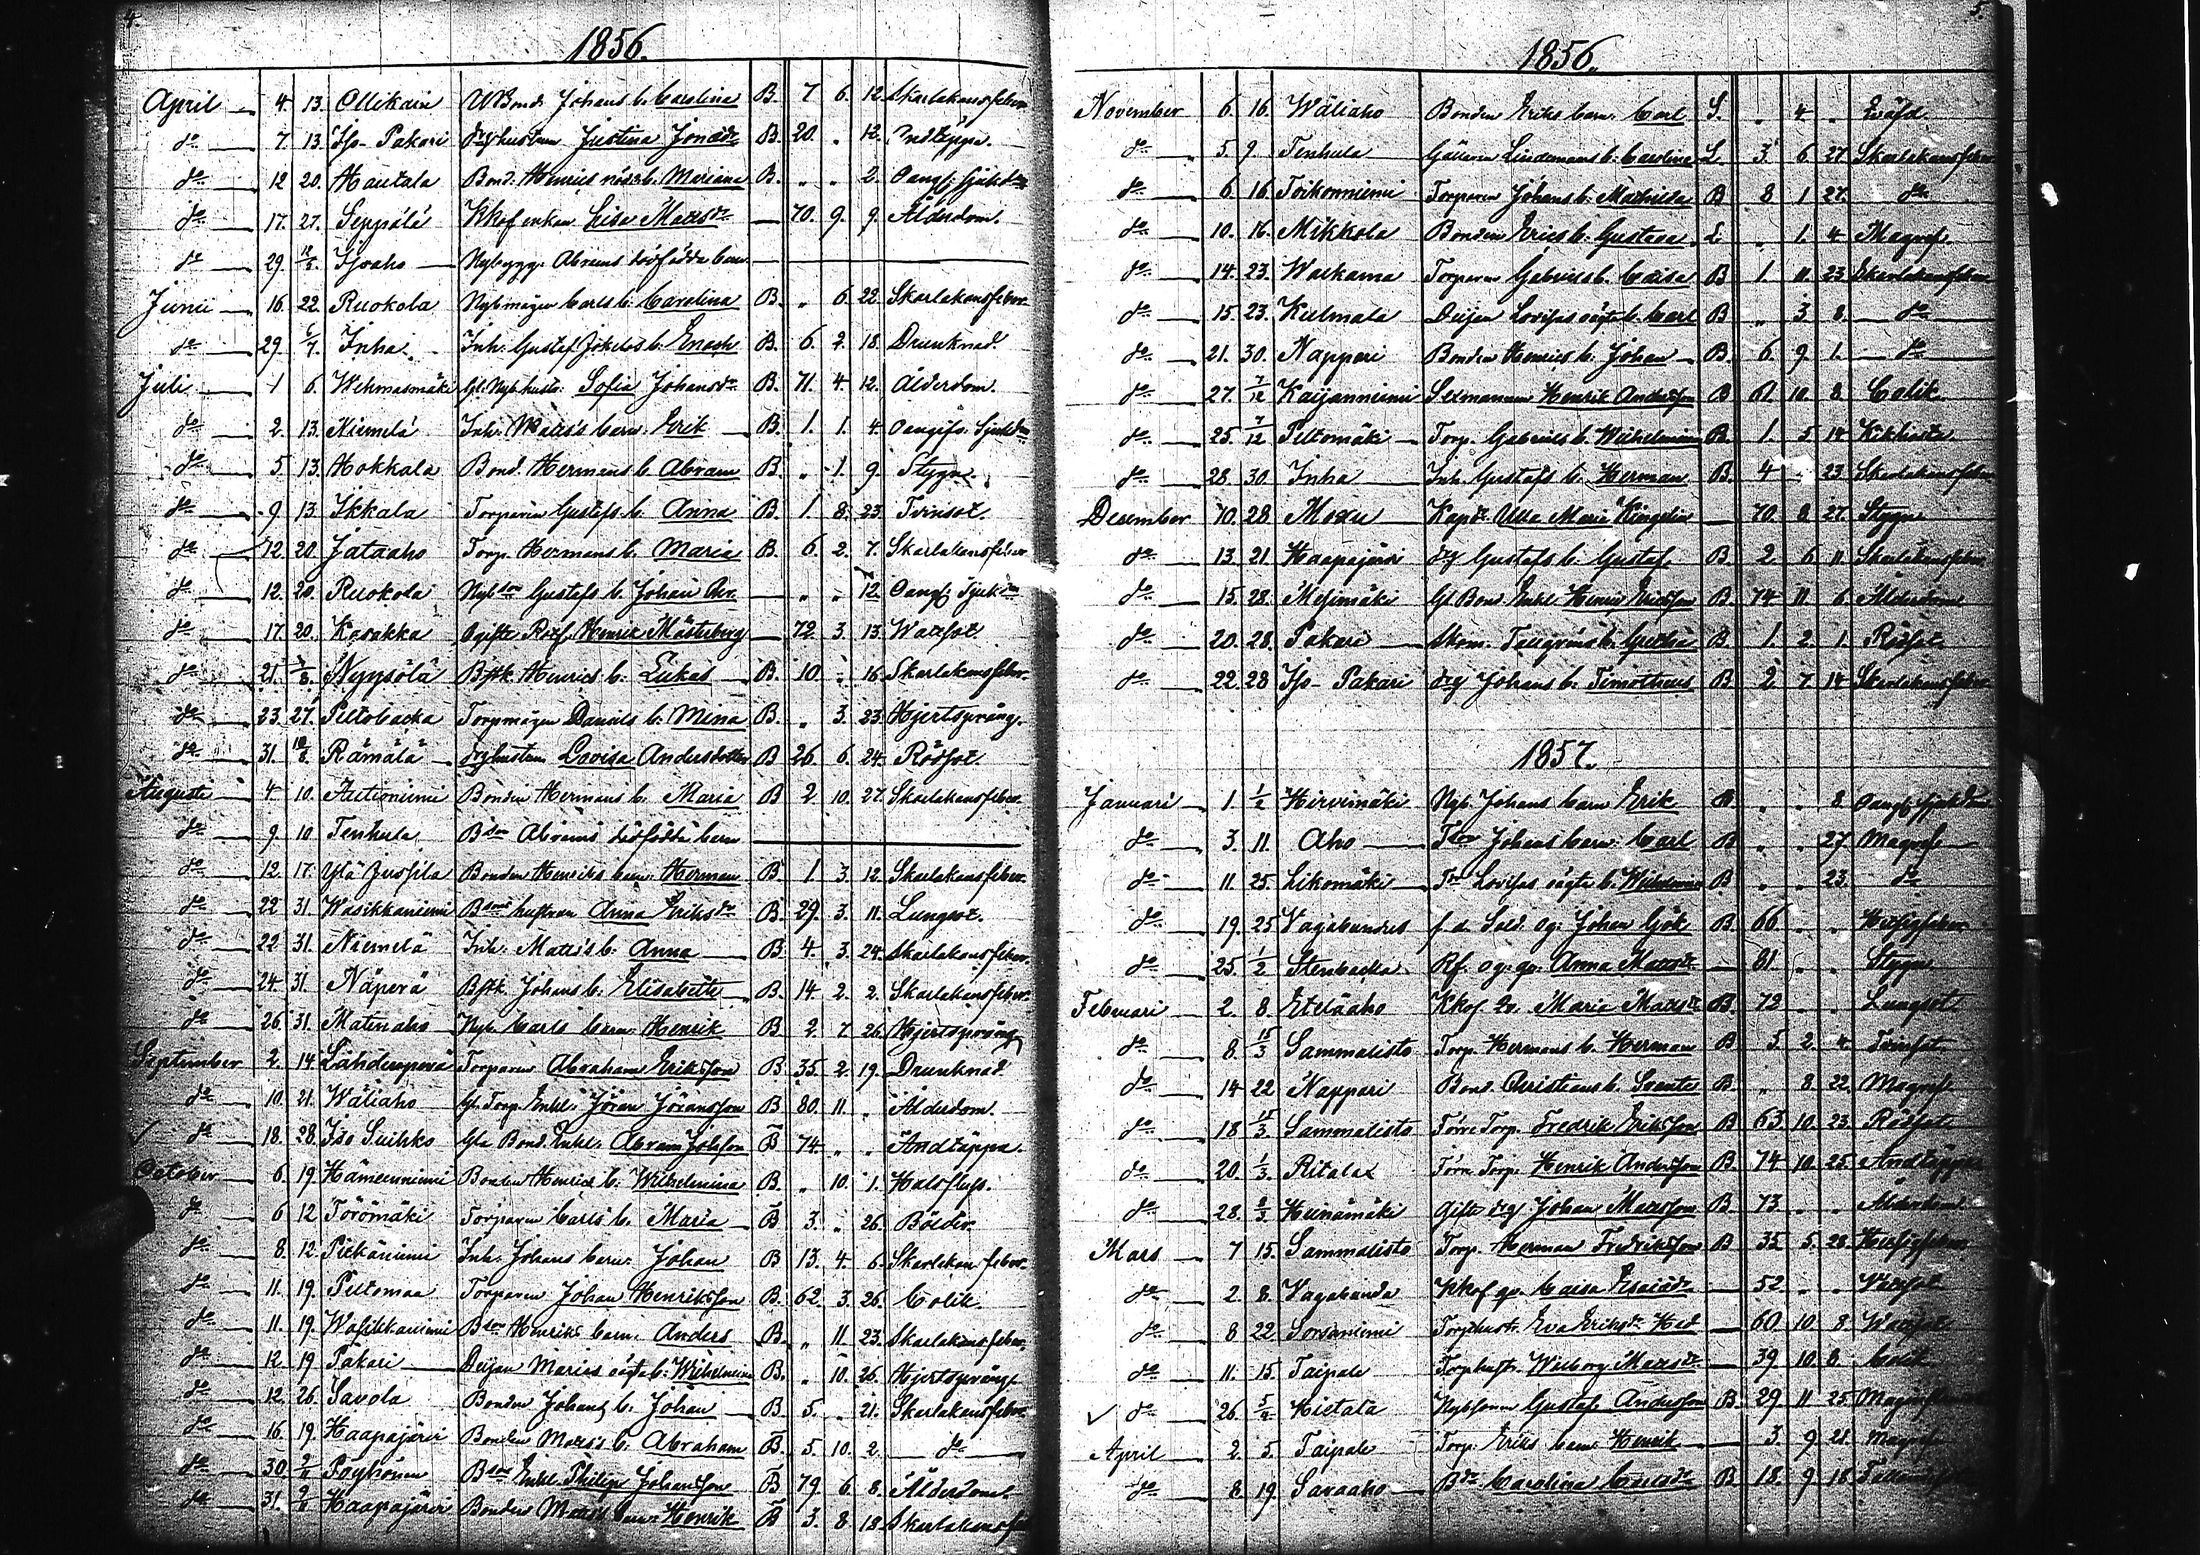 4.
1856.
April 4. 13. Ollikain Bond. Johans b. Carolina B. 7 6. 12. Skarlakansfeber
do 7. 13. Iso Pakari hustrun Justina Jonasdr B. 20. " 12. Andtäppa.
do 12 20. Hautala Bond. Henrics b. Mariana B. " " 2. Oangif. Sjukdm
do 17. 27. Seppälä Kkof enkan Lisa Mattsdr 70. 9. 9. Ålderdom.
do 29. Isoaho Nybygg. Abrams dödfödda barn
Junii 16. 22. Ruokola Nybmågen Carls b. Carolina B. " 6. 22. Skarlakansfeber
do 29. 6/7. Inha Inh. Gustaf b. Enoch B. 6. 2. 18. Drunknad.
Juli 1 6. Wehmasmäki Gl. Nyb. hustr. Sofia Johansdr B. 71. 4 12. Ålderdom.
do 2. 13. Niemelä Inh. Matts's barn Erik B. 1. 1. 4. Oangifv. Sjukdm
do 5. 13. Hokkala Bond. Hermans b. Abram B. " 1. 9. Stygn.
do 9 13. Ikkala Torparen Gustafs b. Anna B. 1. 8. 23. Tvinsot.
do 12. 20. Jataaho Torp. Hermans b. Maria B. 6. 2. 7. Skarlakansfeber
do 12. 20. Ruokola Nyb.son Gustafs b. Johan B. " " 12. Oangf. Sjukdm
do 17 20. Karakka Ogifta Henrik Mästerberg 72 3. 13. Wattsot
do 21. Nyysölä Bstk. Henrics b. Lukas B. 10. " 16. Skarlakansfeber
do 23. 27. Peltobacka Torpmågen Daniels b. Mina B. " 3. 23. Hjertsprång.
do 31. 10/8. Rämälä drg hustrun Lovisa Andersdotter B 26 6. 24. Rödsot
Augusti 4 10. Autioniemi Bonden Hermans b. Maria B 2 10. 27. Skarlakansfeber
do 9 10 Tenhula Bson Abrams dödfödda barn
do 12. 17. Ylä Jussila Bonden Henriks barn Herman B. 1 3. 12. Skarlakansfeber
do 22 31. Wasikkaniemi Bsons hustrun Anna Eriksdr B. 29. 3. 11. Lungsot.
do 22. 31. Niemelä Inh. Matts's b. Anna B 4. 3. 24. Skarlakansfeber
do 24. 31. Näperä Bstk. Johans b. Elisabeth B. 14. 2. 2. Skarlakansfeber
do 26. 31. Matinaho Nyb. Carls barn Henrik B 2 7 26. Hjertsprång
September 2. 14. Lähdeenperä Torparen Abraham Eriksson B. 35. 2. 19. Drunknad
do 10. 21. Wäliaho Gl. Torp. Enkl. Jöran Jöransson B 80 11 " Ålderdom.
do 18. 28. Iso Suihko Gla Bond. Enkl. Abram Jobsson B 74. " " Andtäppa.
October 6. 19. Hämeenniemi Bonden Henrics b. Wilhelmina B. " 10. 1. Halsfluss.
do 6 12 Törömäki Torparen Carls b. Maria B 3. " 26. Bölder.
do 8. 12. Pitkäniemi Inh. Johans barn Johan B 13. 4. 6. Skarlakansfeber
do 11. 19. Peltomaa Torparen Johan Henriksson B. 62. 3. 26. Colik.
do 11. 19. Wasikkaniemi Bson Henriks barn Anders B. " 11 23. Skarlakansfeber
do 12. 19 Pakari Deijan Marias oägta b. Wilhelmina B. " 10. 26. Hjertsprång
do 12. 26. Savola Bonden Johans b. Johan B 5. " 21. Skarlakansfeber
do 16. 19. Haapajärvi Bonden Matts's b. Abraham B. 5. 10. 2. do
do 30. 2/11 Pöyhönen Bson Enkl. Philip Johansson B 79 6 8. Ålderdom.
do 31. 2/11 Haapajärvi Bonden Matts's barn Henrik B 3. 8 18. Skarlakansfeber
5.
1856.
November 6. 16. Wäliaho Bonden Eriks barn Carl S. " 4 "
do 5. 9. Tenhula Lindemans b. Carolina L. 3. 6 27 Skarlakansfeber
do 6 16 Toikonniemi Torparen Johans b. Mathilda B 8 1 27. do
do 10. 16. Mikkola Bonden Erics b. Gustava L. " 1. 4 Magref.
do 14. 23. Warkama Torparen Gabriels b. Caisa B 1. 11 23 Skarlakansfeber
do 15. 23. Kulmala Deijan Lovisas oägta b. Carl B " 3 8. do
do 21. 30. Nappari Bonden Henrics b. Johan B. 6. 9 1. do
do 27. 7/12 Kaijanniemi Sexmannen Henrik Andersson B 61 10. 8. Colik
do 25. 7/12 Peltomäki Torp. Gabriels b. Wilhelmina B. 1. 5 14 Kikhosta
do 28 30. Inha Inh. Gustafs b. Herman B. 4 " 23 Skarlakansfeber
Desember 10. 28. Kapt. Ulla Maria 70. 8 27. Stygn
do 13. 21 Haapajärvi drg Gustafs b. Gustaf B 2 6 11 Skarlakansfeber
do 15. 28. Mesimäki Gl Bond Enkl Henric Ericsson B. 74 11 6. Ålderdom
do 20. 28. Pakari B 1. 2. 1. Rödsot
do 22. 28 Iso Pakari drg Johans b. Timotheus B 2 7 14 Skarlakansfeber
1857.
Januari 1. 1/2 Hirvimäki Nyb. Johans barn Erik B " " 8. Oangf. Sjukdm
do 3. 11. Aho Johans barn Carl B " " 27. Magref
do 11. 25. Likomäki Lovisas oägta b. Wilhelmina B " " 23. do
do 19. 25 Vagabundus f. d. Sold. og. Johan Gök B 66 " " Hetsigfeber
do 25. 1/2 Stenbacka Anna Mattsdr 81. " " Stygn
Februari 2. 8. Eteläaho Kkof. Maria Mattsdr B. 72 " " Lungsot
do 8. 15/3 Sammalisto Torp. Hermans b. Herman B 5 2 4. Tvinsot
do 14 22 Nappari Bond. Christians b. Svante B. " 8 22. Magref
do 18 15/3. Sammalisto Förre Torp. Fredrik Eriksson B 63. 10. 23. Rödsot
do 20. 1/3. Ritala Förre Torp. Henrik Andersson B. 74 10. 25. Andtäppa
do 28. 8/3 Heinämäki Gifte drg Johan Mattsson B 73. " " Ålderdom
Mars 7 15. Sammalisto Torp. Herman Fredriksson B 35 5. 28. Hetsigfeber
do 2. 8. Vagabunda Kkof qv. Caisa 52 " " Wattsot
do 8 22 Sorvaniemi Torphustr. Eva Eriksdr 60 10 8. Wattsot
do 11. 15. Taipale Torphustr. Walborg Mattsdr 39 10. 8. Colik
do 26. 5/4 Hietala Nybsonen Gustaf Andersson B. 29 11 25
April 2. 5. Taipale Torp. Eriks barn Henrik 3. 9 28. Magref
do 8. 19. Savaaho Carolina Carlsdr B 18. 9 18.